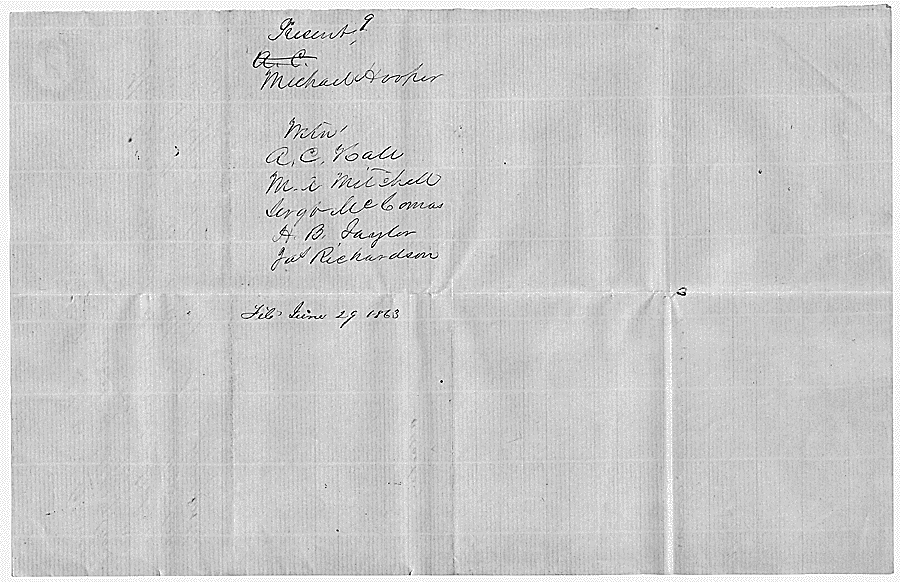 Present, 9
A. C.
Michael Hooper
Witn'
A. C. Hall
M. A Mitchell
McComas
H. B. Taylor
Jas Richardson
June 29 1863